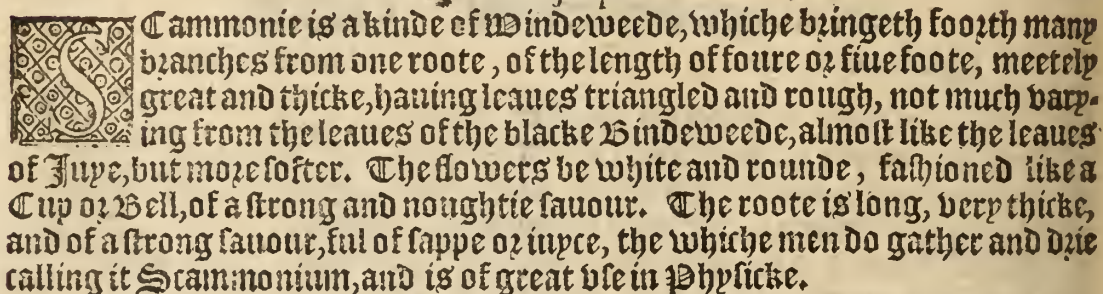 SCammonie is a kinde of Windeweede, whiche bringeth foorth many
branches from one roote, of the length of foure or fiue foote, meetely
great and thicke, hauing leaues triangled and rough, not much vary-
ing from the leaues of the blacke Bindeweede, almost like the leaues
of Iuye, but more softer. The flowers be white and rounde, fashioned like a
Cup or Bell, of a strong and noughtie sauour. The roote is long, very thicke,
and of a strong sauour, ful of sappe or iuyce, the whiche men do gather and drie
calling it Scammonium, and is of great vse in Physicke.